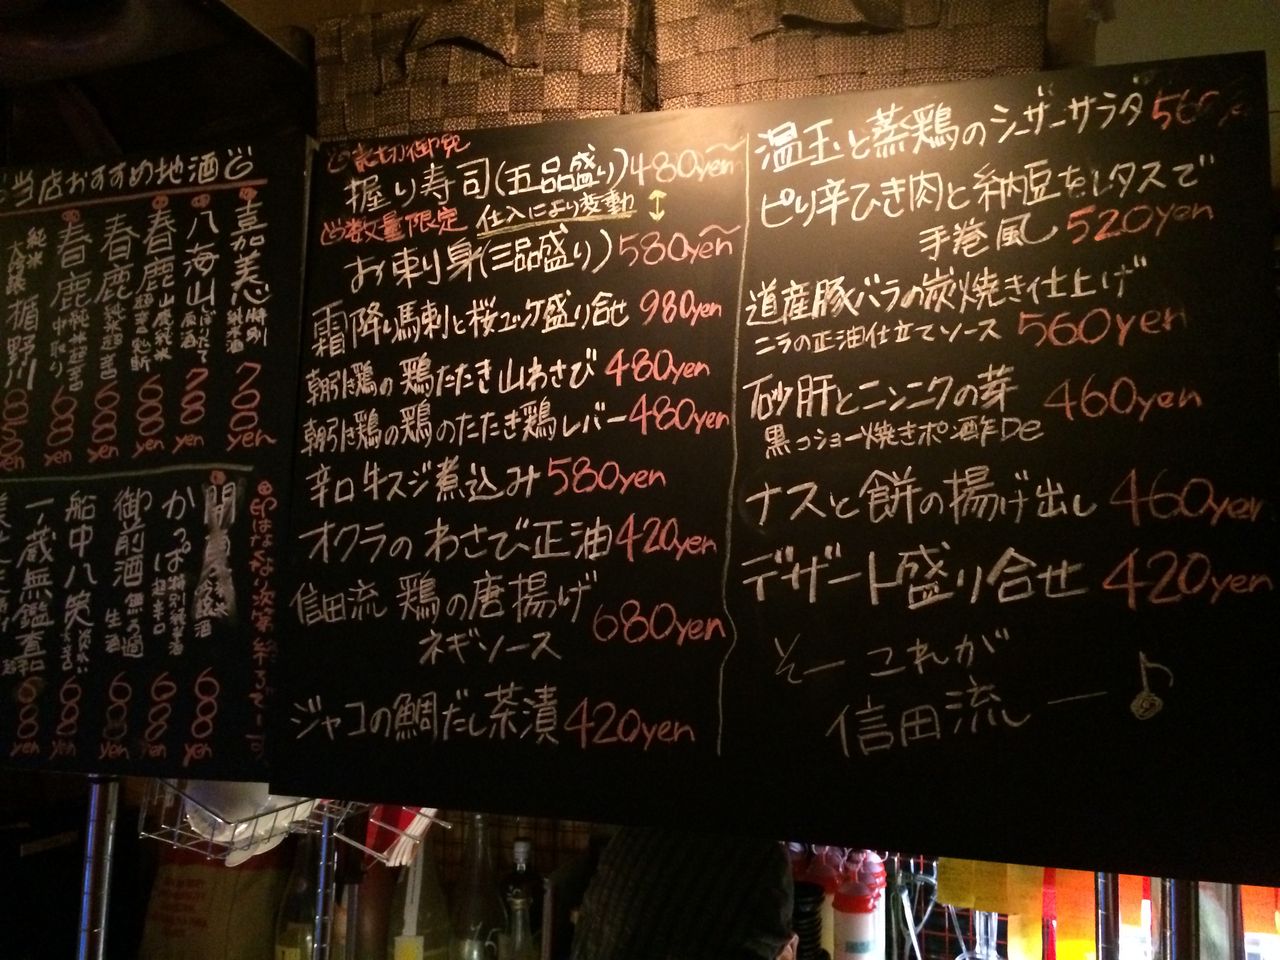 当店おすすめ地酒
喜加美心 特別純米酒 700yen
八海山 しぼりたて原酒 780yen
春鹿 山廃純米 680yen
春鹿 純米超辛口 680yen
春鹿 純米超辛口 中取り 680yen
純米大吟醸 楯野川
印はなくなり次第終了で一す
純米吟醸酒 680yen
かっぱ 特別純米酒 超辛口 680yen
御前酒 無ろ過生酒 680yen
船中八策 680yen
一ノ蔵無鑑査 680yen
売切御免
握り寿司(五品盛り)480yen〜
数量限定 仕入により変動
お刺身(三品盛り)580yen〜
霜降り馬刺と桜ユッケ盛り合せ 980yen
朝引き鶏の鶏たたき山わさび 480yen
朝引き鶏の鶏のたたき鶏レバー 480yen
辛口牛スジ煮込み 580yen
オクラのわさび正油 420yen
信田流 鶏の唐揚げ
ネギソース 680yen
ジャコの鯛だし茶漬 420yen
温玉と蒸鶏のシーザーサラダ 560
ピリ辛ひき肉と納豆をレタスで
手巻風 520yen
道産豚バラの炭焼き仕上げ
ニラの正油仕立てソース 560yen
砂肝とニンニクの芽 460yen
黒コショー焼きポン酢De
ナスと餅の揚げ出し 460yen
デザート盛り合せ 420yen
そーこれが
信田流ー♪